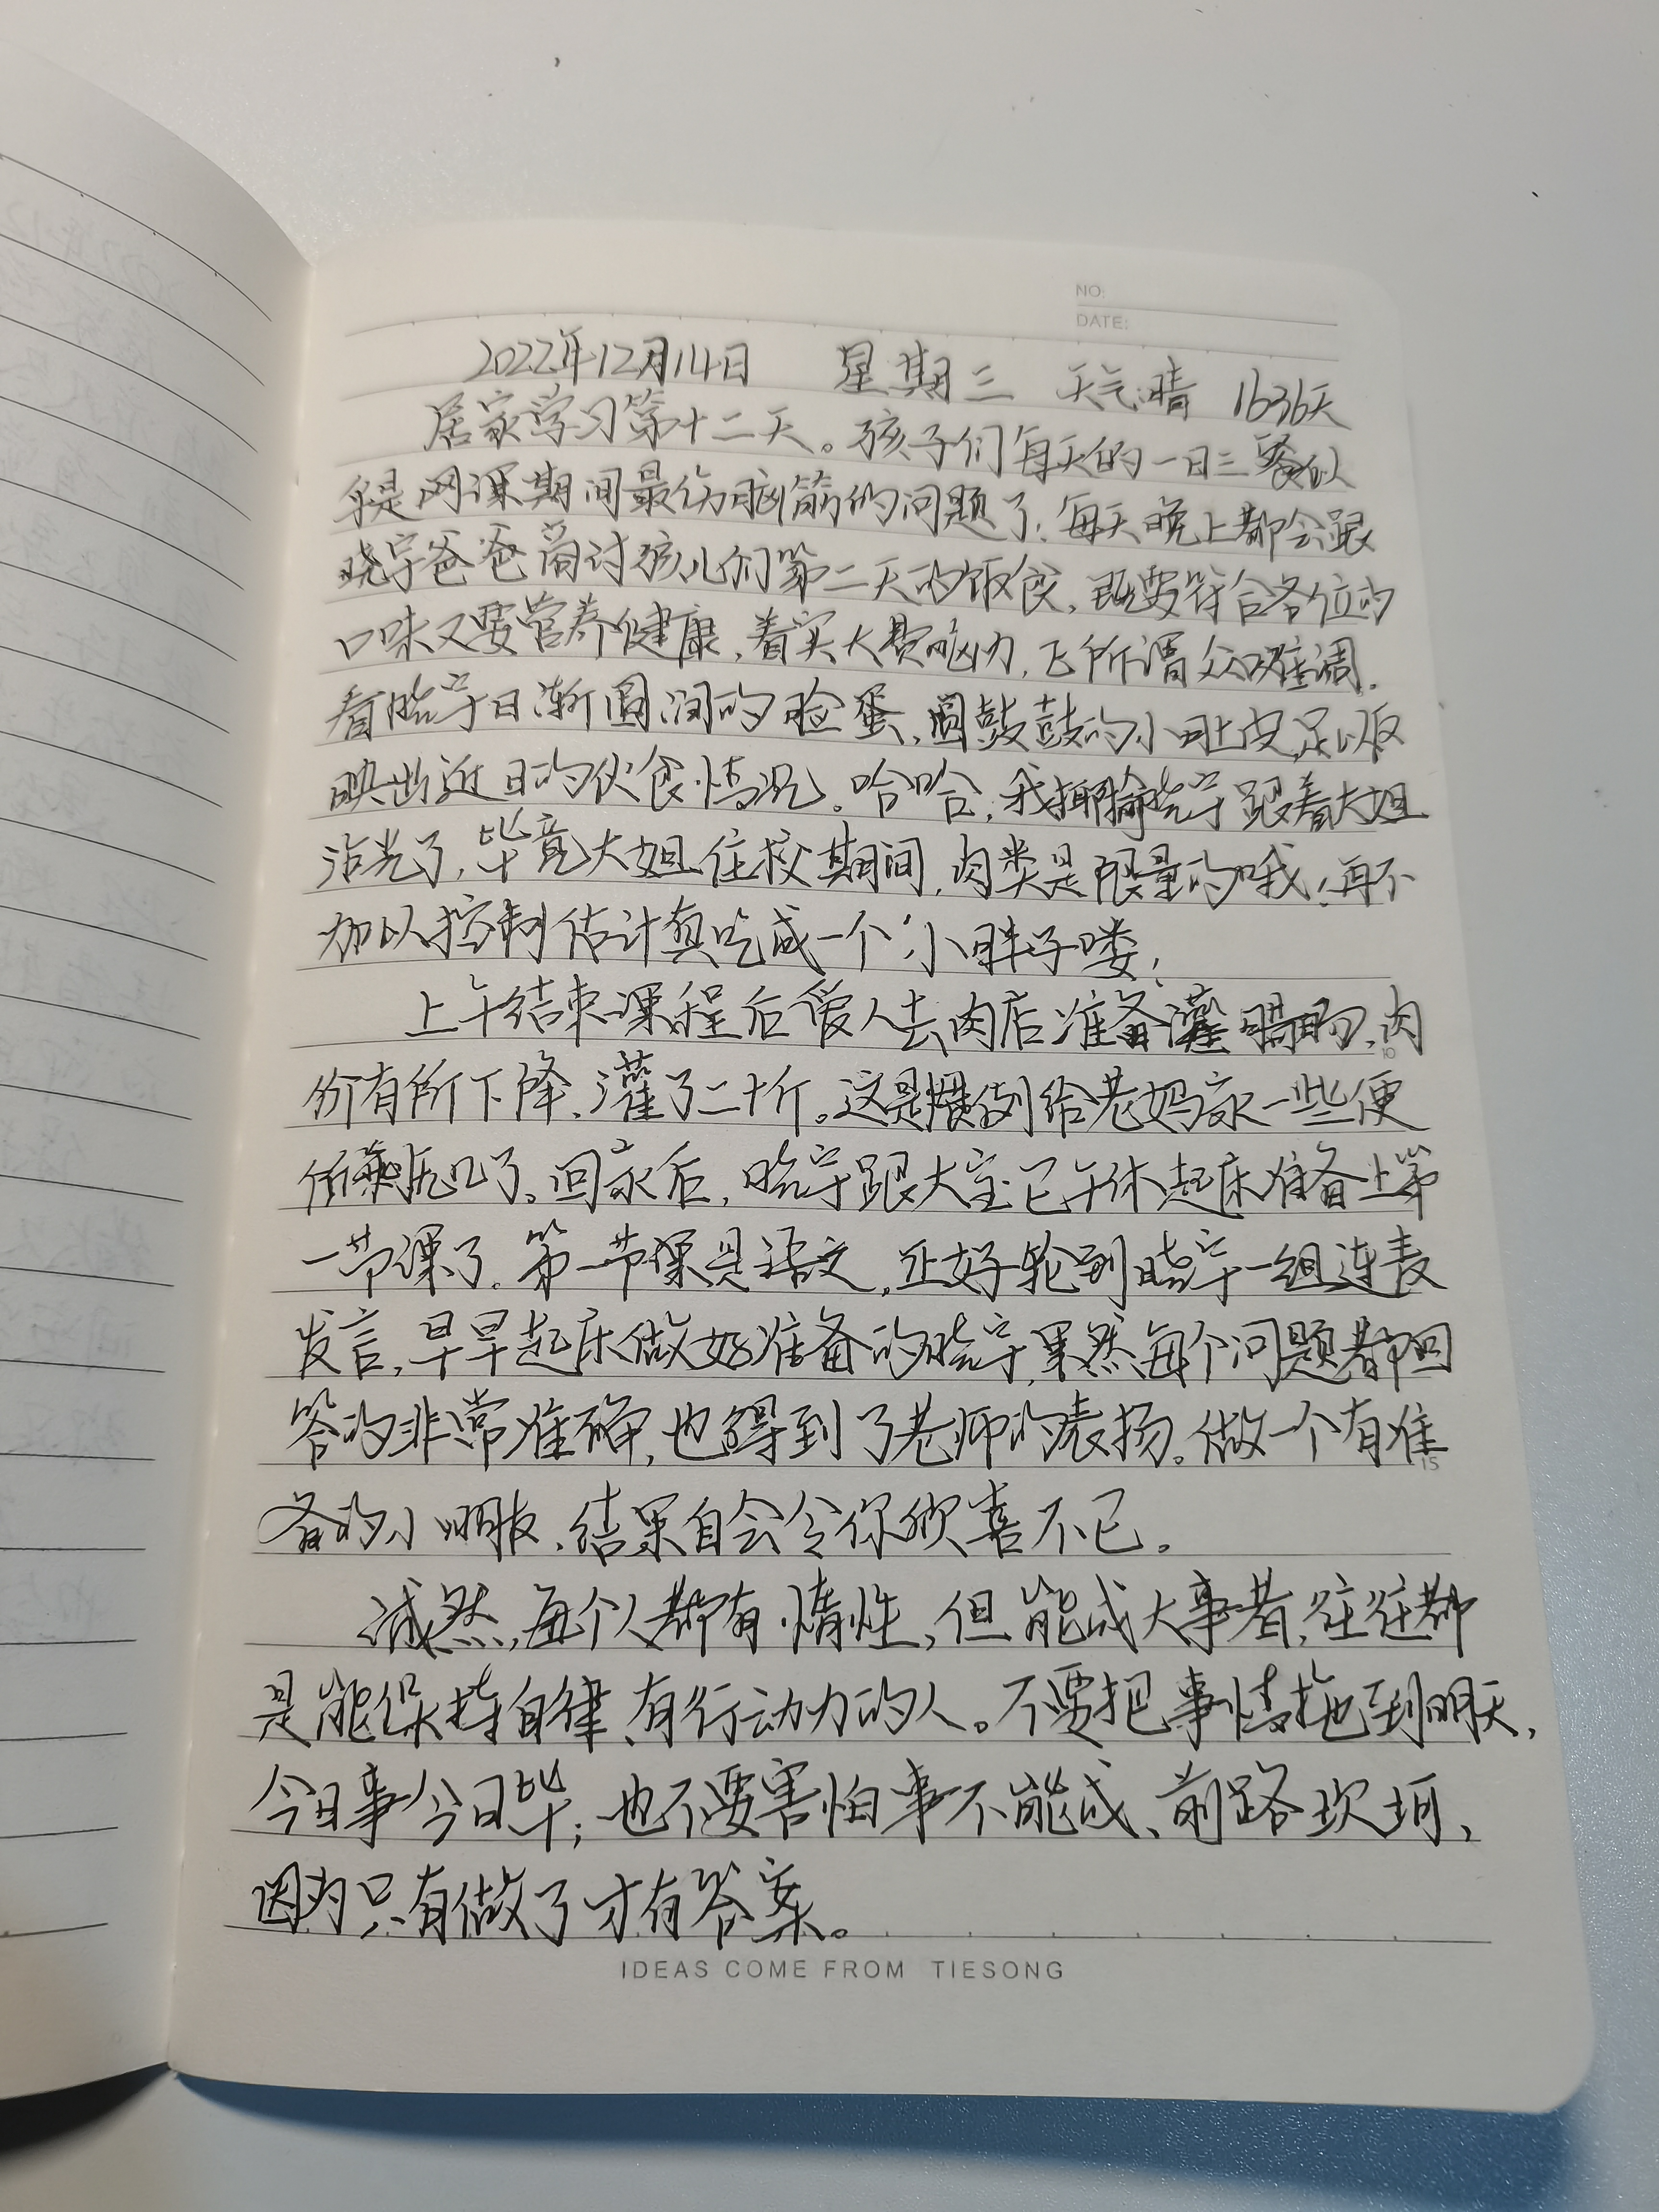 NO:
DATE:
2022年12月14日 星期三 天气:晴 1636天
居家学习第十二天。孩子们每天的一日三餐似
乎是网课期间最伤脑筋的问题了,每天晚上都会跟
晓宇爸爸商讨孩儿们第二天的饭食,既要符合各位的
口味又要营养健康,着实大费脑力,正所谓众口难调。
看晓宇日渐圆润的脸蛋,圆鼓鼓的小肚皮足以反
映出近日的伙食情况。哈哈,我揶揄晓宇跟着大姐
沾光了,毕竟大姐住校期间,肉类是限量的哦!再不
加以控制估计真吃成一个小胖子喽!
上午结束课程后爱人去肉店准备灌腊肠,肉
价有所下降,灌了二十斤。这是惯例给老妈家一些便
所剩无几了。回家后,晓宇跟大宝已午休起床准备上第
一节课了。第一节课是语文,正好轮到晓宇一组连麦
发言,早早起床做好准备的晓宇,果然每个问题都回
答的非常准确,也得到了老师的表扬。做一个有准
备的小朋友,结果自会令你欣喜不已。
诚然,每个人都有惰性,但能成大事者,往往都
是能保持自律、有行动力的人。不要把事情拖到明天,
今日事今日毕;也不要害怕事不能成、前路坎坷,
因为只有做了才有答案。
10
15
IDEAS COME FROM TIESONG